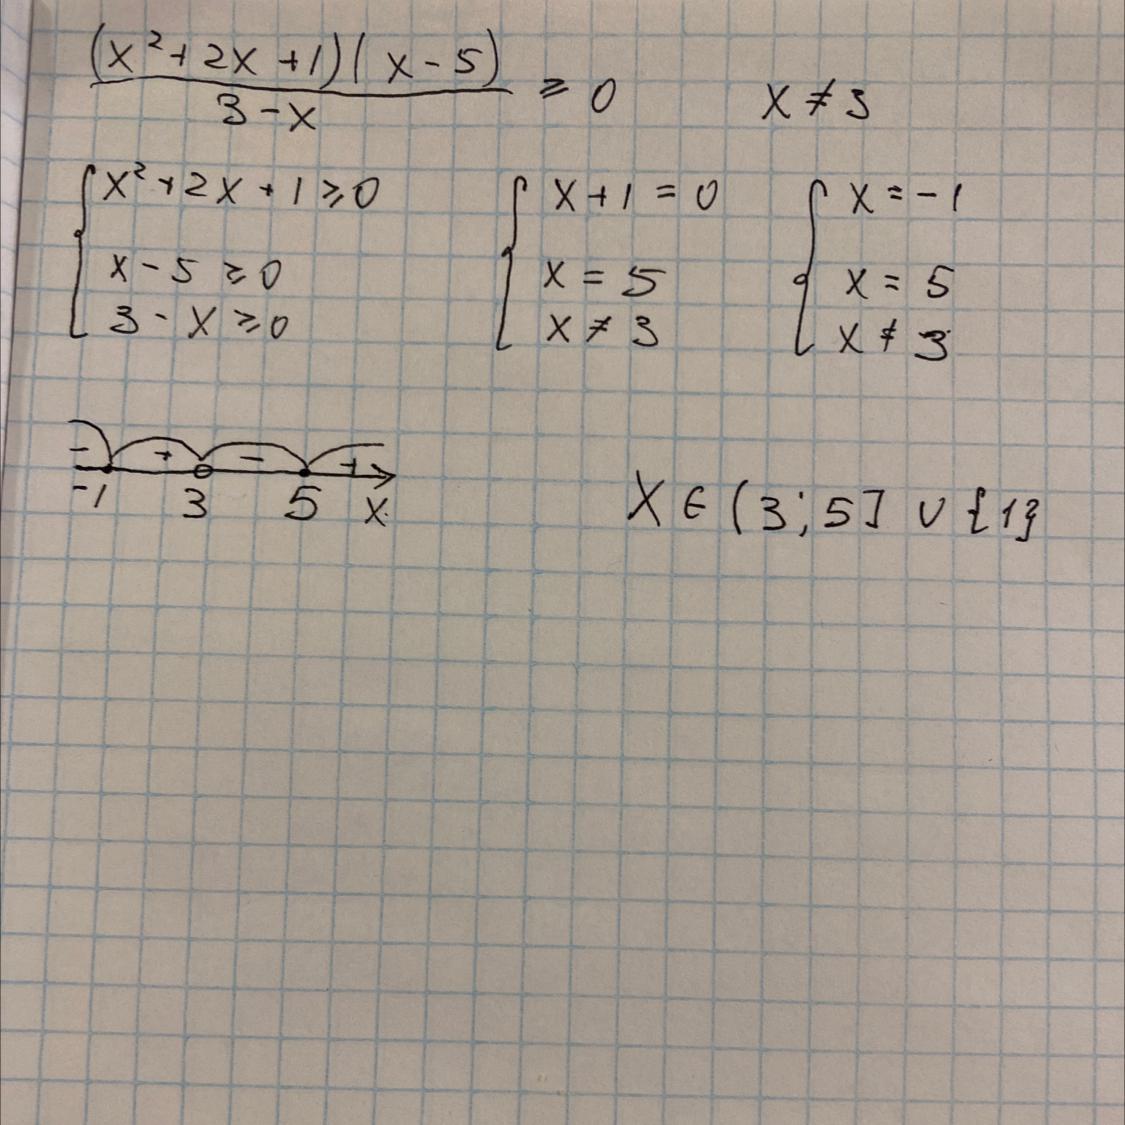 (x²+2x+1)(x-5)/3-x ≥ 0    x ≠ 3
{x²+2x+1≥0    {x+1=0    {x=-1
x-5≥0    x=5    x=5
3-x≥0    x≠3    x≠3
- + - +
-1 3 5 x
x ∈ (3;5] ∪ {1}